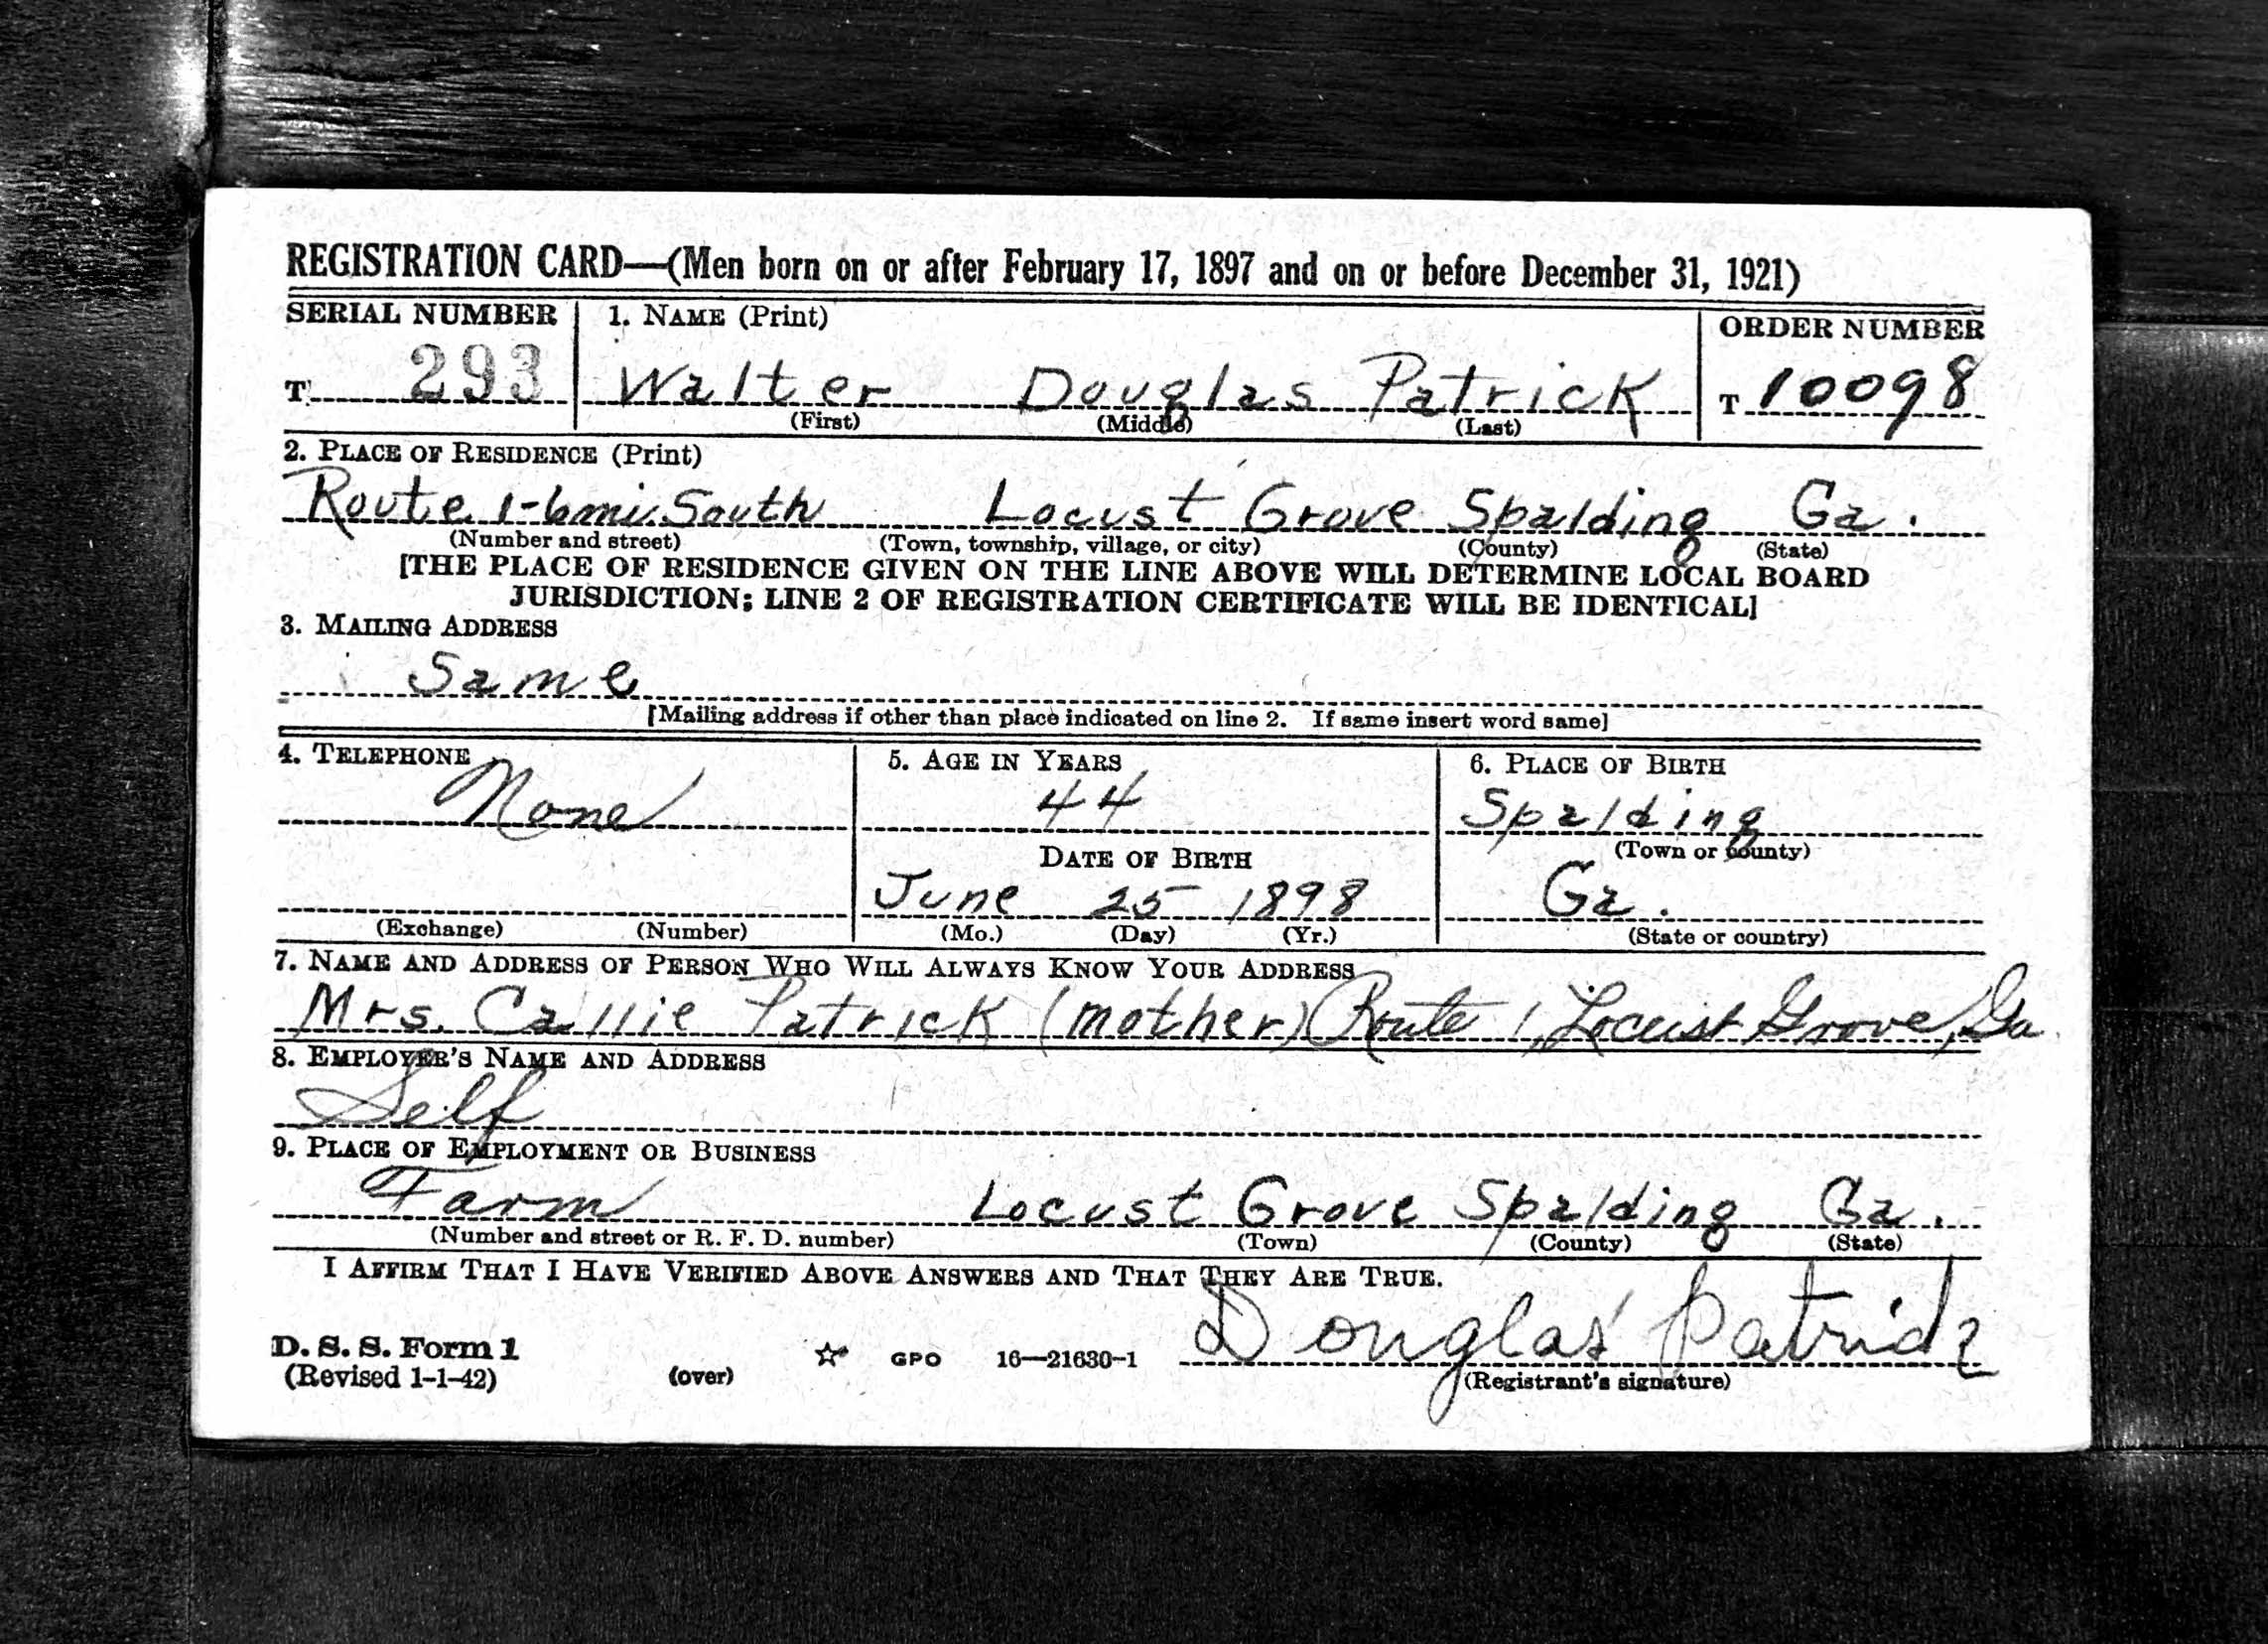 REGISTRATION CARD—(Men born on or after February 17, 1897 and on or before December 31, 1921)
SERIAL NUMBER 1. NAME (Print) ORDER NUMBER
T 293 Walter Douglas Patrick T 10098
(First) (Middle) (Last)
2. PLACE OF RESIDENCE (Print)
Route 1-6mi. South Locust Grove Spalding Ga.
(Number and street) (Town, township, village, or city) (County) (State)
[THE PLACE OF RESIDENCE GIVEN ON THE LINE ABOVE WILL DETERMINE LOCAL BOARD
JURISDICTION; LINE 2 OF REGISTRATION CERTIFICATE WILL BE IDENTICAL]
3. MAILING ADDRESS
Same
[Mailing address if other than place indicated on line 2. If same insert word same]
4. TELEPHONE 5. AGE IN YEARS 6. PLACE OF BIRTH
None 44 Spalding
(Town or county)
DATE OF BIRTH
June 25 1898 Ga.
(Exchange) (Number) (Mo.) (Day) (Yr.) (State or country)
7. NAME AND ADDRESS OF PERSON WHO WILL ALWAYS KNOW YOUR ADDRESS
Mrs. Callie Patrick (mother) Route 1, Locust Grove, Ga.
8. EMPLOYER'S NAME AND ADDRESS
Self
9. PLACE OF EMPLOYMENT OR BUSINESS
Farm Locust Grove Spalding Ga.
(Number and street or R. F. D. number) (Town) (County) (State)
I AFFIRM THAT I HAVE VERIFIED ABOVE ANSWERS AND THAT THEY ARE TRUE.
Douglas Patrick
D. S. S. Form 1
(Revised 1-1-42) (over) ☆ GPO 16—21630-1 (Registrant's signature)